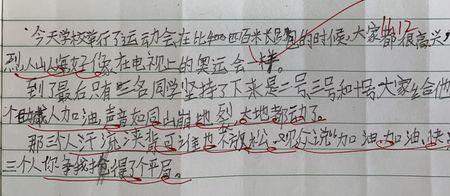 今天学校举行了运动会在比400四百米长跑的时候,大家都很高兴,
烈,人山人海好像在电视上的奥运会一样。
到了最后只有三名同学坚持了下来是二号三号和十号大家给他
个助威人加油,声音如同山崩地裂,大地都动了。
那三个人汗流浃背可谁也不放松,观众说"加油,加油,快
三个人你争我抢得了个平局。